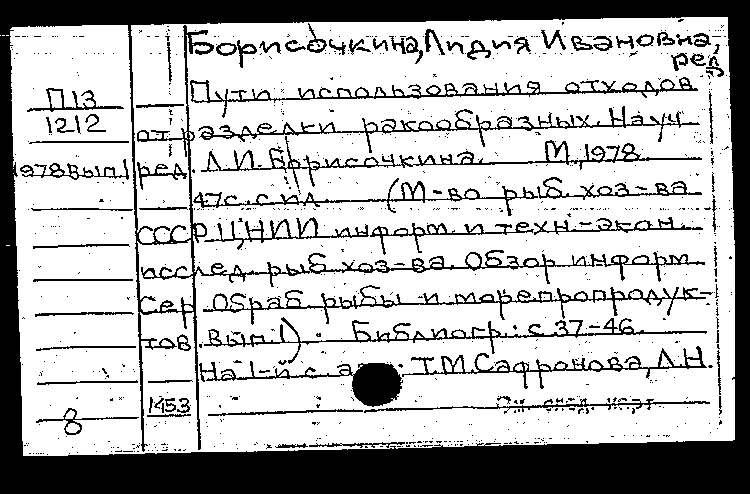 Борисочкина, Лидия Ивановна,
ред.
П13 Пути использования отходов
1212 от разделки ракообразных. Науч
1978 вып.1 ред. Л.И. Борисочкина. М., 1978.
47с. с ил. (М-во рыб. хоз-ва
СССР. ЦНИИ информ. и техн.-экон.
исслед. рыб. хоз-ва. Обзор. информ.
Сер. Обраб. рыбы и морепродук-
тов. Вып. 1). Библиогр.: с. 37-46.
На 1-й с. Т.М. Сафронова, Л.Н.
1453
8